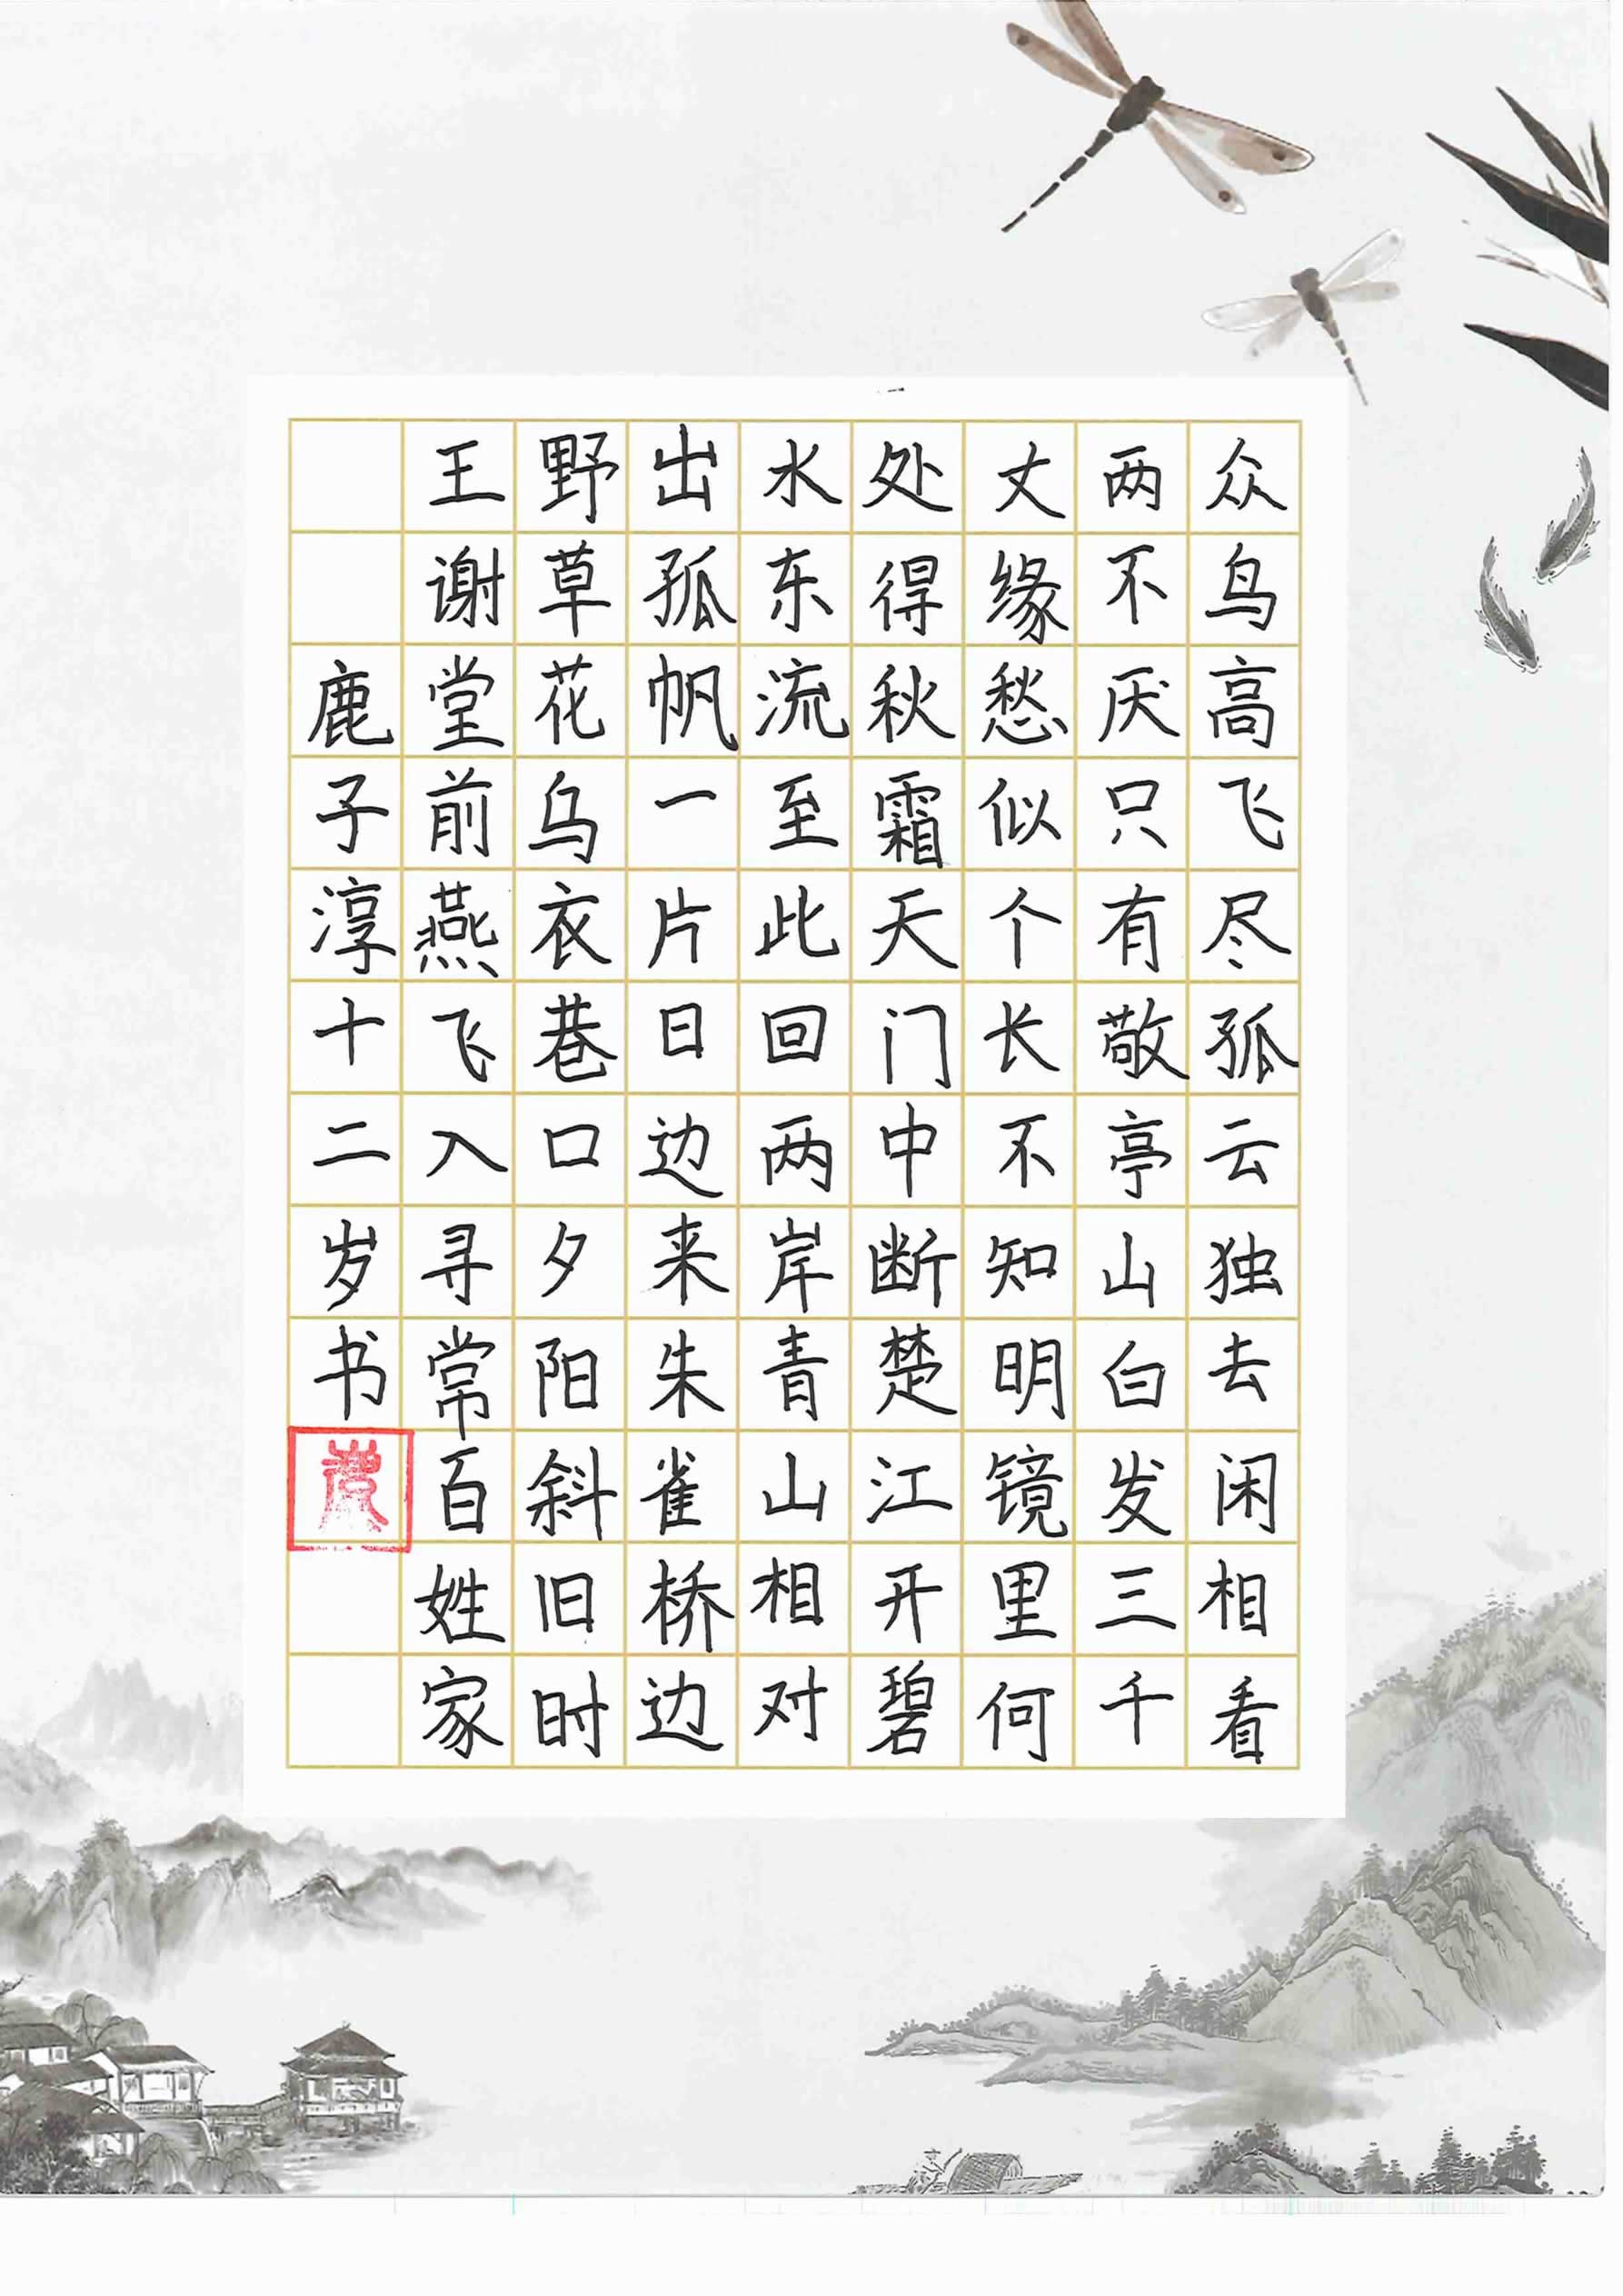 众鸟高飞尽孤云独去闲相看
两不厌只有敬亭山白发三千
丈缘愁似个长不知明镜里何
处得秋霜天门中断楚江开碧
水东流至此回两岸青山相对
出孤帆一片日边来朱雀桥边
野草花乌衣巷口夕阳斜旧时
王谢堂前燕飞入寻常百姓家
鹿子淳十二岁书